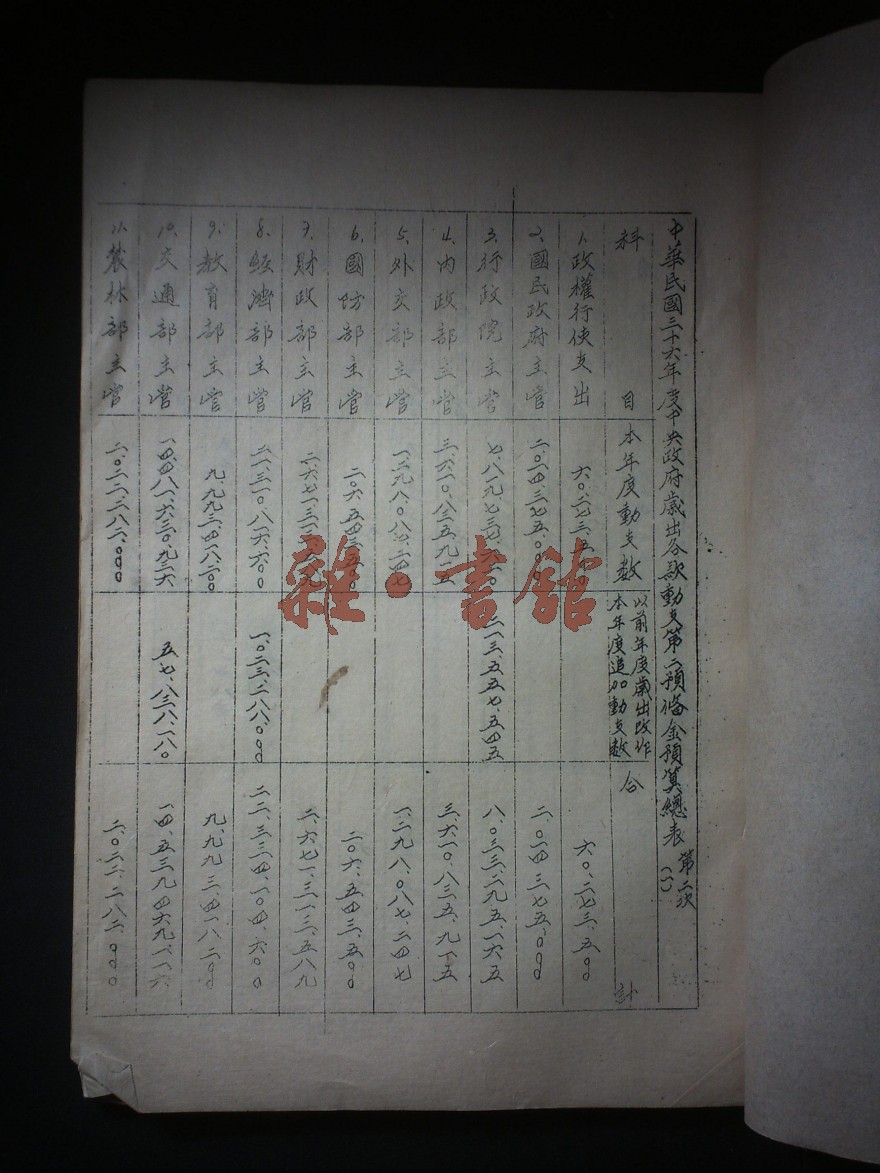 中華民國三十六年度中央政府歲出各款動支第二預備金預算總表 第二次 (一)
科目
本年度動支數
以前年度歲出改作本年度追加動支數
合計
1、政權行使支出
六〇、二七三、五〇〇
2、國民政府主管
二、〇一四、三七五、〇〇〇 二、〇一四、三七五、〇〇〇
3、行政院主管
二一三、五五七、五四五 八、〇三三、二九五、一六五
4、內政部主管
三、六一〇、八三五、九一五 三、六一〇、八三五、九一五
5、外交部主管
一、二九八、〇八七、二四七 一、二九八、〇八七、二四七
6、國防部主管
二〇六、五四三、五〇〇 二〇六、五四三、五〇〇
7、財政部主管
二、六七一、三一三、五八九
8、經濟部主管
二一、三一〇、八一六、六〇〇 一、〇二三、二八八、〇〇〇 二二、三三四、一〇四、六〇〇
9、教育部主管
九、九九三、四一八、二〇〇 九、九九三、四一八、二〇〇
10、交通部主管
一四、四八一、六三〇、九三六 五七、八三八、一八〇 一四、五三九、四六九、一一六
11、農林部主管
二、〇二二、二八二、〇〇〇 二、〇二二、二八二、〇〇〇
雜·書館